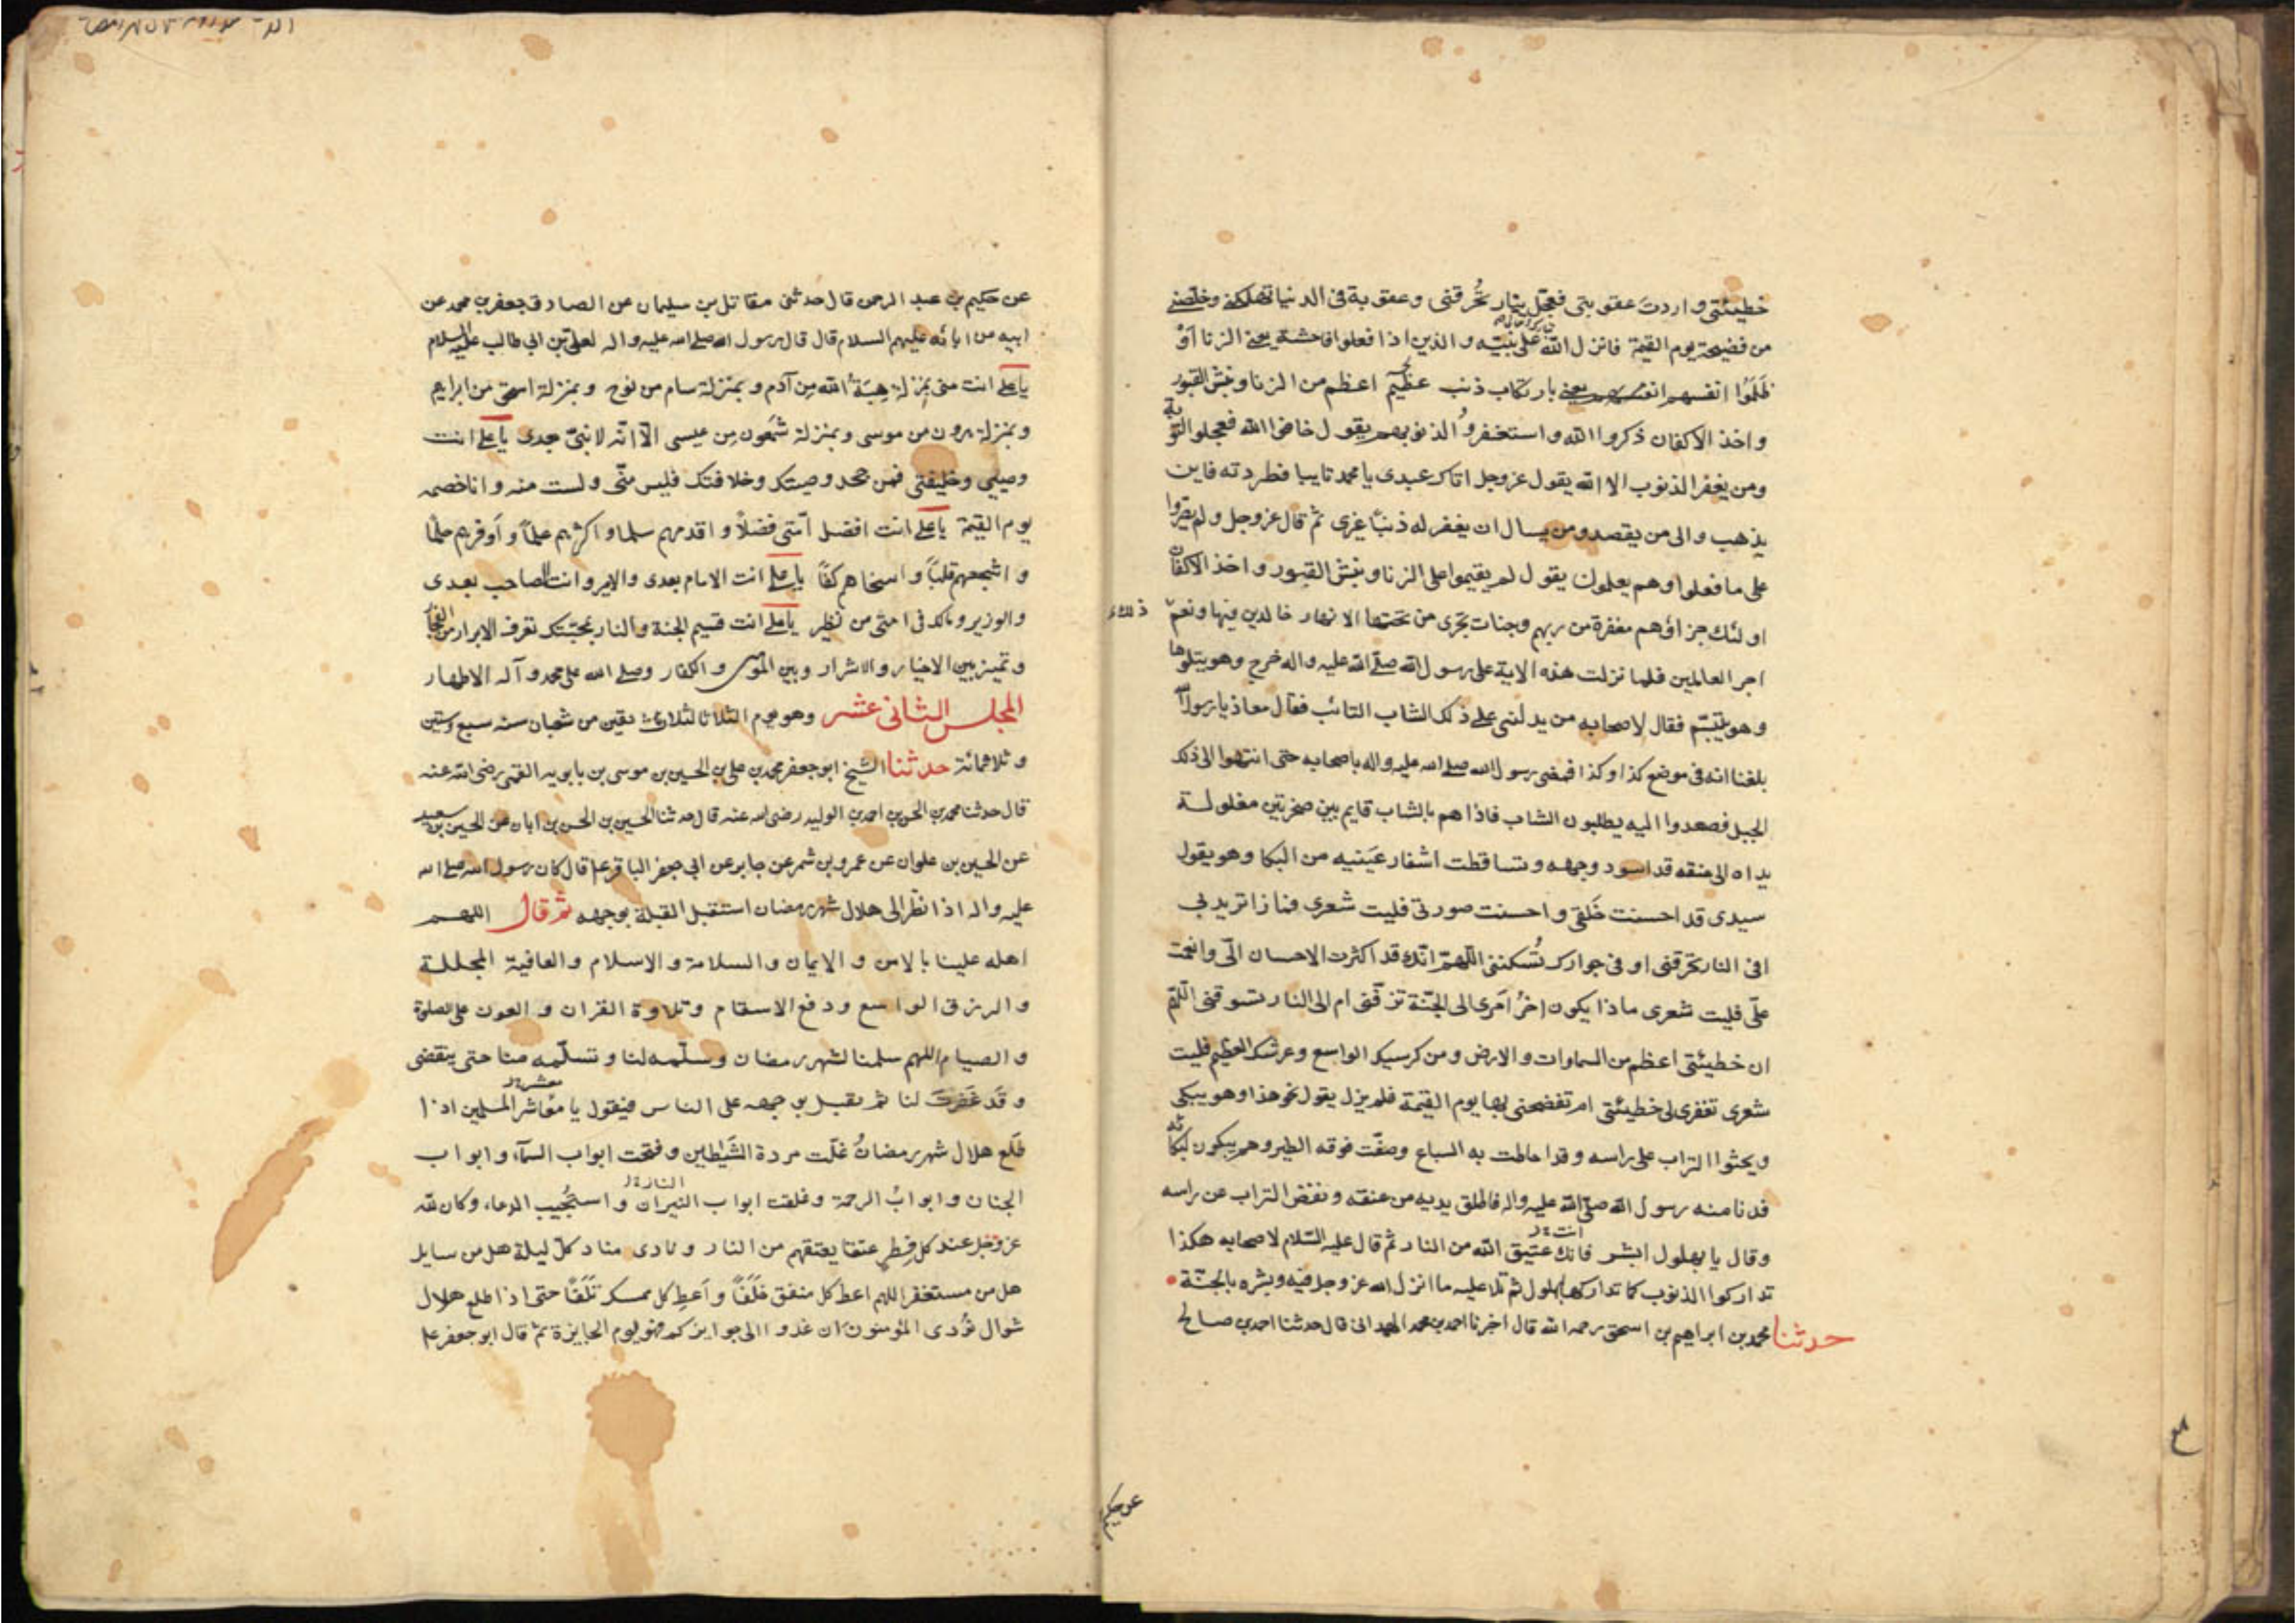 خطيئتي واردت عقوبتي فعجل بنار تحرقني وعقوبة في الدنيا تهلكني وخلصني
من فضيحة يوم القيمة فانزل الله على نبيه والذين اذا فعلوا فاحشة يعني الزنا اَوْ
ظَلَمُوا انفسهم يعني بارتكاب ذنب عظيم اعظم من الزنا ونبش القبور
واخذ الاكفان ذكروا الله واستغفروُا لذنوبهم يقول خافوا الله فعجلوا التوبة
ومن يغفر الذنوب الا الله يقول عزوجل اتاك عبدى يا محمد تايبا فطردته فاين
يذهب والى من يقصد ومن يسال ان يغفر له ذنبًا غيرى ثم قال عزوجل ولم يصروا
على ما فعلوا وهم يعلمون يقول لم يقيموا على الزنا ونبش القبور واخذ الاكفان
اولئك جزاؤهم مغفرة من ربهم وجنات تجرى من تحتها الانهار خالدين فيها ونعم
اجر العالمين فلما نزلت هذه الاية على رسول الله صلّى الله عليه واله خرج وهو يتلوها
وهو يتبسّم فقال لاصحابه من يدلّنى على ذلك الشاب التائب فقال معاذ يا رسول الله
بلغنا انه فى موضع كذا وكذا فمضى رسول الله صلى الله عليه واله باصحابه حتى انتهوا الى ذلك
الجبل فصعدوا اليه يطلبون الشاب فاذا هم بالشاب قايم بين صخرتين مغلولة
يداه الى عنقه قد اسود وجهه وتساقطت اشفار عَينيه من البكا وهو يقول
سيدى قد احسنت خَلقى واحسنت صورتى فليت شعرى ماذا تريد بى
افى النار تحرقنى او فى جوارك تُسكننى اللّهمّ انّك قد اكثرت الاحسان الىّ وانعمت
علىّ فليت شعرى ماذا يكون اخرُ امرى الى الجنّة تزفّنى ام الى النار تسوقنى اللّهمّ
ان خطيئتى اعظم من السماوات والارض ومن كرسيك الواسع وعرشك العظيم فليت
شعرى تغفر لى خطيئتى ام تفضحنى بها يوم القيمة فلم يزل يقول نحو هذا وهو يبكى
ويحثوا التراب على راسه وقد احاطت به السباع وصفّت فوقه الطير وهم يبكون لبكائه
فدنا منه رسول الله صلّى الله عليه واله فاطلق يديه من عنقه ونفض التراب عن راسه
وقال يا بهلول ابشر فانك عتيق الله من النار ثم قال عليه السّلام لاصحابه هكذا
تداركوا الذنوب كما تداركها بهلول ثم تلا عليه ما انزل الله عزوجل فيه وبشره بالجنّة
حدثنا محمد بن ابراهيم بن اسحق رحمه الله قال اخبرنا احمد بن محمد الهمدانى قال حدثنا احمد بن صالح
ذلك
عن حكيم
عن حكيم بن عبد الرحمن قال حدثنى مقاتل بن سليمان عن الصادق جعفر بن محمد عن
ابيه عن ابائه عليهم السلام قال قال رسول الله صلى الله عليه واله لعلى بن ابى طالب عليه السلام
يا على انت منى بمنزلة هبَةُ الله مِن آدم وبمنزلة سام من نوح وبمنزلة اسحق من ابراهيم
وبمنزلة هرون من موسى وبمنزلة شمعون مِن عيسى الّا انّه لا نبىّ بعدى يا على انت
وصيى وخليفتى فمن جحد وصيتك وخلافتك فليس منّى ولست منه وانا خصمه
يوم القيمة يا على انت افضل امّتى فضلاً واقدمهم سلما واكثرهم علمًا واَوفرهم حلمًا
واشجعهم قلبًا واسخاهم كفًا يا على انت الامام بعدى والامير وانت الصاحب بعدى
والوزير ومالك فى امتى من نظير يا على انت قسيم الجنة والنار بمحبّتك تعرف الابرار من الفجار
وتميز بين الاخيار والاشرار وبين المؤمنين والكفار وصلى الله على محمد وآله الاطهار
المجلس الثانى عشر وهو يوم الثلاثا لثلاث بقين من شعبان سنه سبع وستين
وثلاثمائة حدثنا الشيخ ابو جعفر محمد بن على بن الحسين بن موسى بن بابويه القمى رضى الله عنه
قال حدثنا محمد بن الحسن بن احمد بن الوليد رضى الله عنه قال حدثنا الحسين بن الحسن بن ابان عن الحسين بن سعيد
عن الحسين بن علوان عن عمرو بن شمر عن جابر عن ابى جعفر الباقر ع قال كان رسول الله صلى الله
عليه واله اذا نظر الى هلال شهر رمضان استقبل القبلة بوجهه ثم قال اللهم
اهله علينا بالامن والايمان والسلامة والاسلام والعافية المجللة
والرزق الواسع ودفع الاسقام وتلاوة القران والعون على الصلوة
والصيام اللهم سلمنا لشهر رمضان وسلّمه لنا وتسلّمه منا حتى ينقضى
وقَد غَفَرتَ لنا ثم يقبل بوجهه على الناس فيقول يا معاشر المسلمين اذا
طلَع هلال شهر رمضانَ غلّت مردة الشّياطين وفتحت ابواب السّماء وابواب
الجنان وابوابُ الرحمة وغلقت ابواب النيران واستُجيب الدعاء وكان لله
عزوجل عند كل فِطرٍ عتقا يعتقهم من النار ونادى مناد كلّ ليلة هل من سايل
هل من مستغفر اللهم اعط كل منفق خَلَفًا واَعطِ كل ممسك تَلَفًا حتى اذا طلع هلال
شوال نُودى المؤمنون ان غدوا الى جوايزكم فهو يوم الجايزة ثم قال ابو جعفر ع